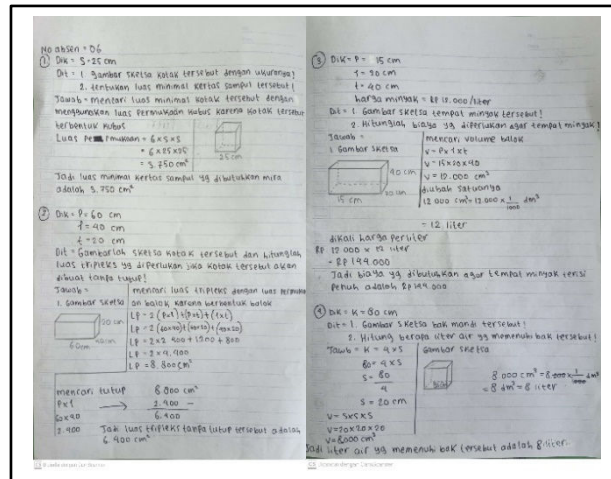 No absen = 06
① Dik = S = 25 cm
Dit = 1. gambar sketsa kotak tersebut dengan ukurannya!
2. tentukan luas minimal kertas sampul tersebut!
Jawab = mencari luas minimal kotak tersebut dengan
menggunakan luas permukaan kubus karena kotak tersebut
berbentuk kubus
Luas Permukaan = 6×s×s
= 6×25×25
= 3.750 cm²
25 cm
Jadi luas minimal kertas sampul yg dibutuhkan mira
adalah 3.750 cm²
② Dik = P = 60 cm
l = 40 cm
t = 20 cm
Dit = Gambarlah sketsa kotak tersebut dan hitunglah
luas tripleks yg diperlukan jika kotak tersebut akan
dibuat tanpa tutup!
Jawab =
1. Gambar sketsa
20 cm
40 cm
60 cm
mencari luas tripleks dengan luas permuka
an balok karena berbentuk balok
LP = 2 (p×l)+(p×t)+(l×t)
LP = 2 (60×40)+(60×20)+(40×20)
LP = 2×2.400+1200+800
LP = 2×4.400
LP = 8.800 cm²
mencari tutup
p×l
60×40
2.400
8.800 cm²
2.400 -
6.400
Jadi luas tripleks tanpa tutup tersebut adalah
6.400 cm²
③ Dik = P = 15 cm
l = 20 cm
t = 40 cm
harga minyak = RP 12.000/liter
Dit = 1. Gambar sketsa tempat minyak tersebut!
2. Hitunglah biaya yg diperlukan agar tempat minyak!
Jawab =
1 Gambar sketsa
40 cm
20 cm
15 cm
mencari volume balok
V = P×l×t
V = 15×20×40
V = 12.000 cm³
diubah satuannya
12 000 cm³ = 12.000 × 1/1000 dm³
= 12 liter
dikali harga perliter
RP 12 000 × 12 liter
= RP 144 000
Jadi biaya yg dibutuhkan agar tempat minyak terisi
penuh adalah RP 144.000
④ Dik = K = 80 cm
Dit = 1. Gambar sketsa bak mandi tersebut!
2. Hitung berapa liter air yg memenuhi bak tersebut!
Jawab = K = 4×s
80 = 4×s
s = 80/4
s = 20 cm
V = s×s×s
V = 20×20×20
V = 8000 cm³
Gambar sketsa
8 000 cm³ = 8.000 × 1/1000 dm³
= 8 dm³ = 8 liter
Jadi liter air yg memenuhi bak tersebut adalah 8 liter.